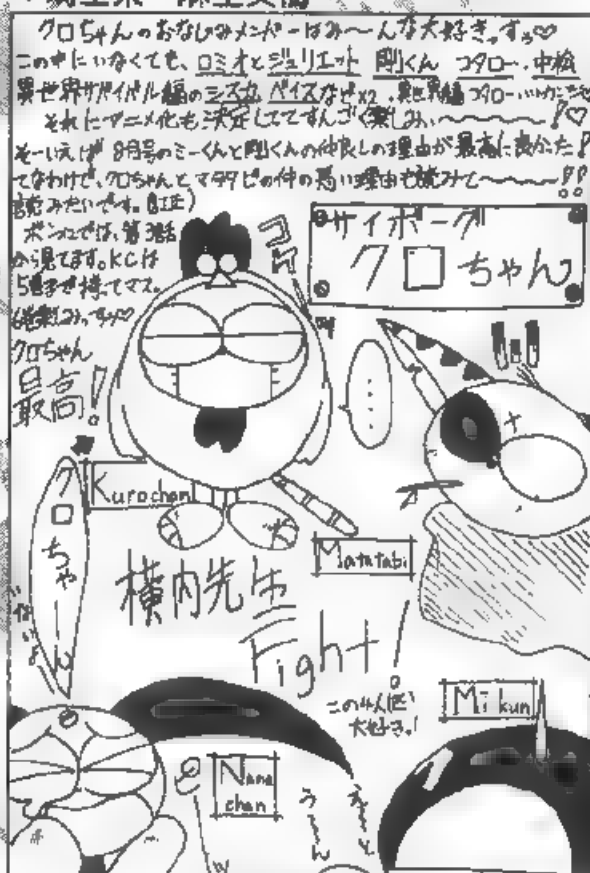 クロちゃんのおなじみメンバーはみ〜んな大好きっすっ♡
この中にいなくても、ロミオとジュリエット 剛くん コタロー・中松
異世界サバイバル編の
それにアニメ化も決定しててすんごく楽しみぃ〜〜〜〜!♡
そーいえば 8月号のミーくんと剛くんの仲良しの理由が最高に良かた!
てなわけで、クロちゃんとマタタビの仲の悪い理由も読みて〜〜〜〜!!
読みたいです。
ボンボンでは、第3話
から見てます。KCは
5巻まで持てマス。
クロちゃん
最高!
コケ
サイボーグ
クロちゃん
・・・・
Kurochan
クロちゃーん
いないよ
Matatabi
横内先生
Fight
この4人(匹)
大好き!
Mi kun
Nana
chan
う〜〜ん
え〜と